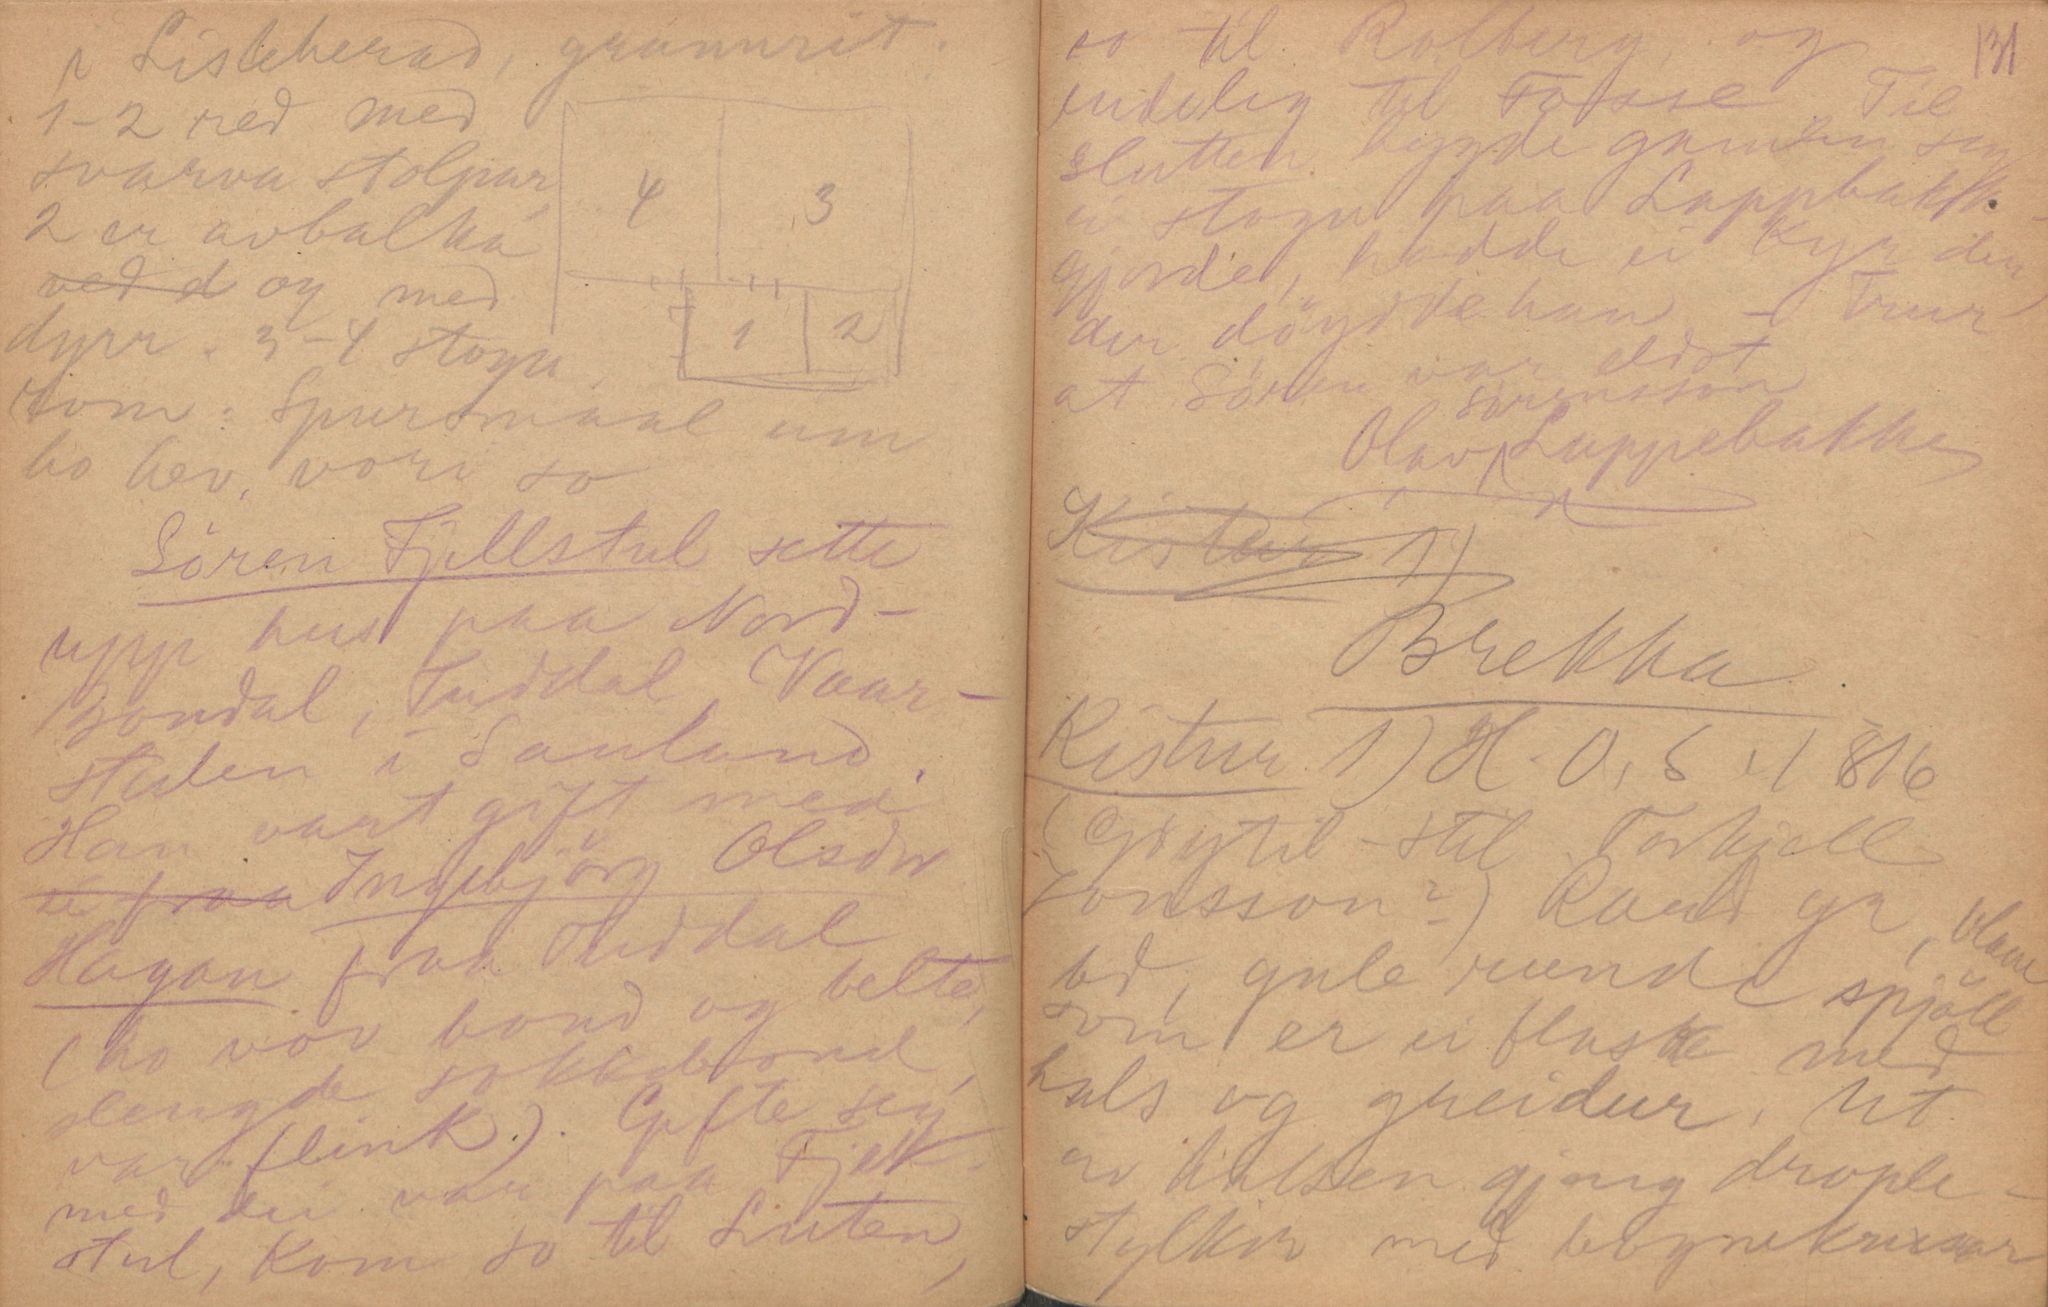 i Lisleherad, grunnrit.
1-2 med
svarva stolpar
2 er avbalka
ved d og med
dyrr. 3-4 stogu
rom. Spursmaal um
ho hev vori so
4 3
1 2
Sören Fjellstul sette
upp hus paa Nord-
bondal, Tuddal, Vaar-
stulen i Sauland.
Han vart gift med
fraa Ingebjörg Olsdtr
Hagan fraa Tuddal
(ho vov bond og belte,
slengde sokkebond,
var flink). Gifte seg
med dei var paa Fjell-
stul, kom so til Luten,
131
so til Kolberg, og
endeleg til Fosse. Til
slutten bygde gamlen seg
ei stogu paa Luppebakk-
gjorde, hadde ei kyr der,
der döydde han - Trur
at Sören var eldst
Sörensson
Olav Luppebakke
Kistur 1)
Brekka
Kistur 1) H. O. S. 1816
(Göytil-stil Torkjell
Jonsson?) Raud gr, blaae
bd, gule runde spjöll
som er ei flaske med
hals og greidur. Ut
av halsen gjeng drope-
stylkir med bogne